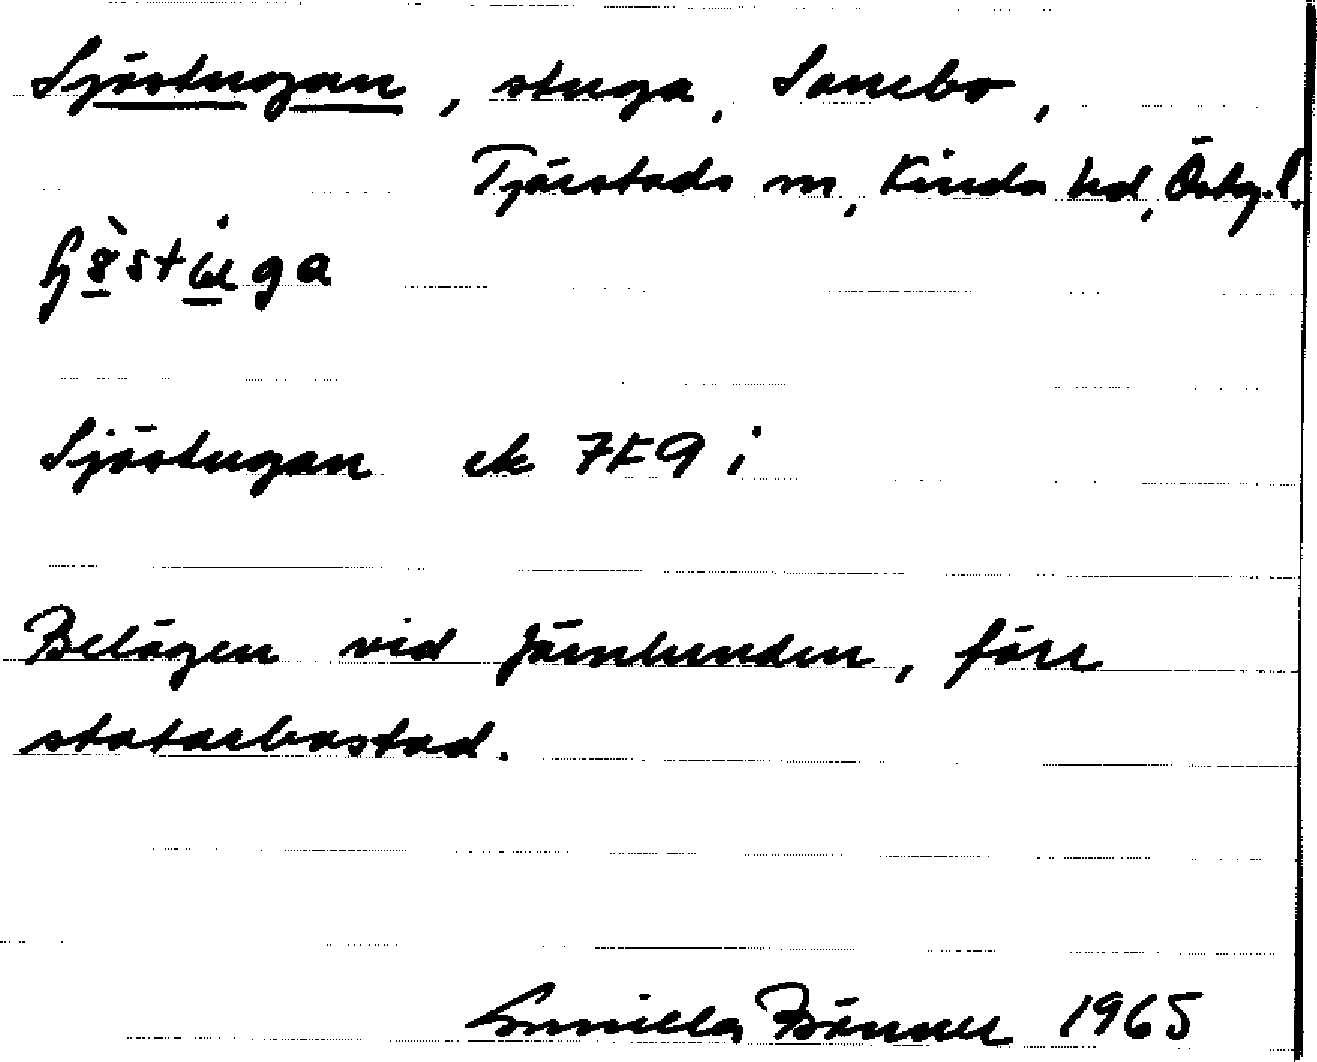 Sjöstugan, stuga, Sonebo,
Tjärstads sn, Kinda hd, Östg.l.
Sjöstugan ek 7F9i
Belägen vid Järnlunden, förr
statarbostad.
Gunilla 1965